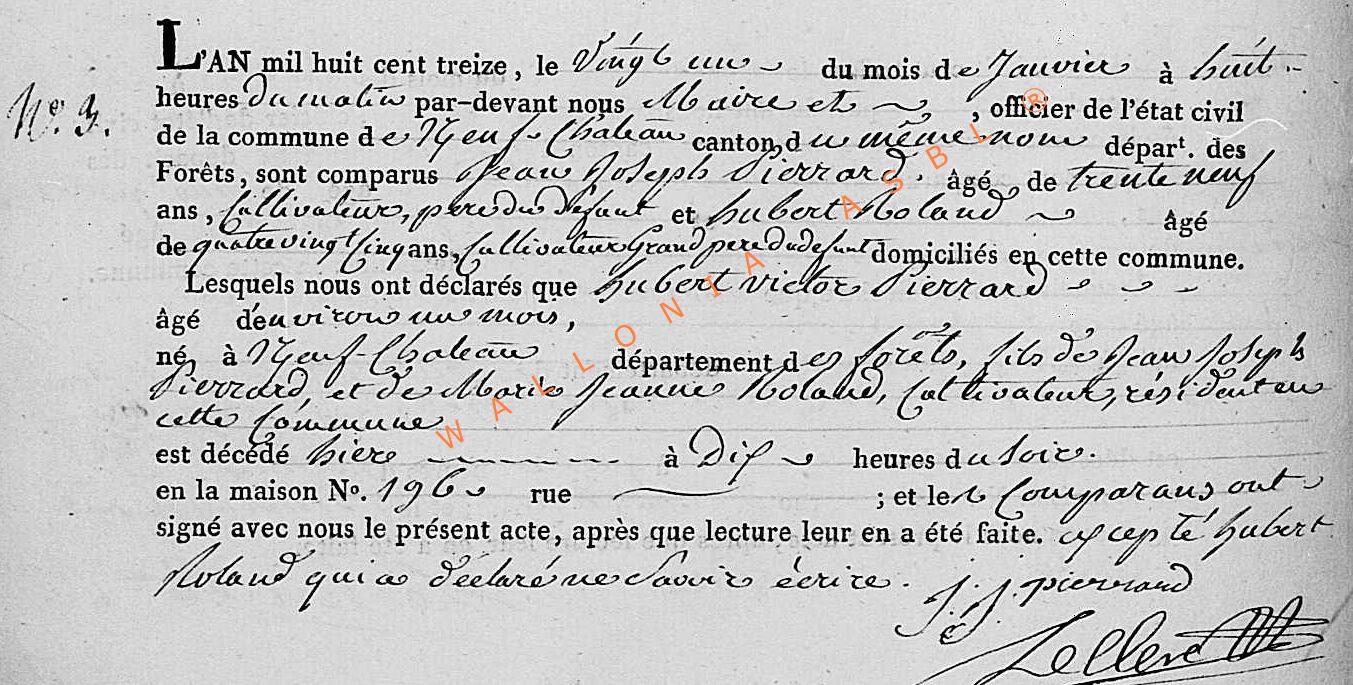 L'AN mil huit cent treize, le Vingt un du mois de Janvier à huit
N.º 3. heures du matin par-devant nous Maire et , officier de l'état civil
de la commune de Neuf-Chateau canton du même nom départ. des
Forêts, sont comparus Jean Joseph Pierrard. âgé de trente neuf
ans, Cultivateur, pere du défunt et hubert Roland âgé
de quatre vingt Cinq ans, Cultivateur Grand pere du defunt domiciliés en cette commune.
Lesquels nous ont déclarés que hubert victor Pierrard
âgé d'environ un mois,
né à Neuf-Chateau département des forêts, fils de Jean Joseph
Pierrard, et de Marie Jeanne Roland, Cultivateur, résident en
cette Commune
est décédé hier à Dix heures du Soir.
en la maison Nº. 196 rue ; et les Comparans ont
signé avec nous le présent acte, après que lecture leur en a été faite. excepté hubert
Roland qui a déclaré ne Savoir écrire. J. J. pierrard
WALLONIA ASBL ®